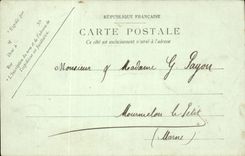 RÉPUBLIQUE FRANÇAISE
CARTE POSTALE
Ce côté est exclusivement réservé à l'adresse
Monsieur & Madame G Payon
Mourmelon le Petit
(Marne)